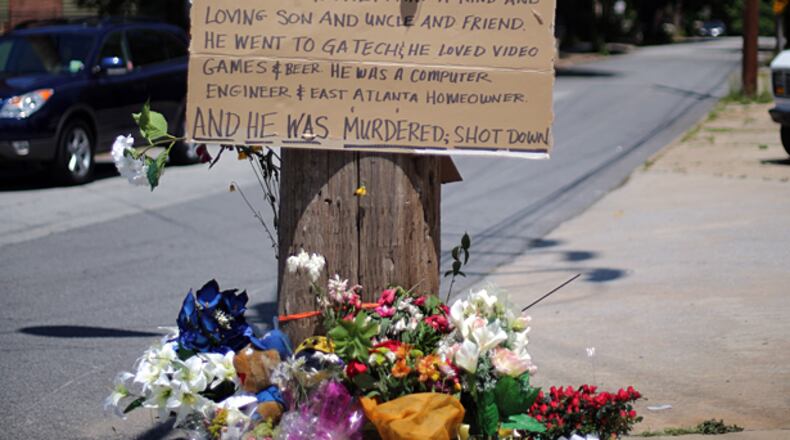 LOVING SON AND UNCLE AND FRIEND.
HE WENT TO GA TECH; HE LOVED VIDEO
GAMES & BEER. HE WAS A COMPUTER
ENGINEER & EAST ATLANTA HOMEOWNER.
AND HE WAS MURDERED; SHOT DOWN